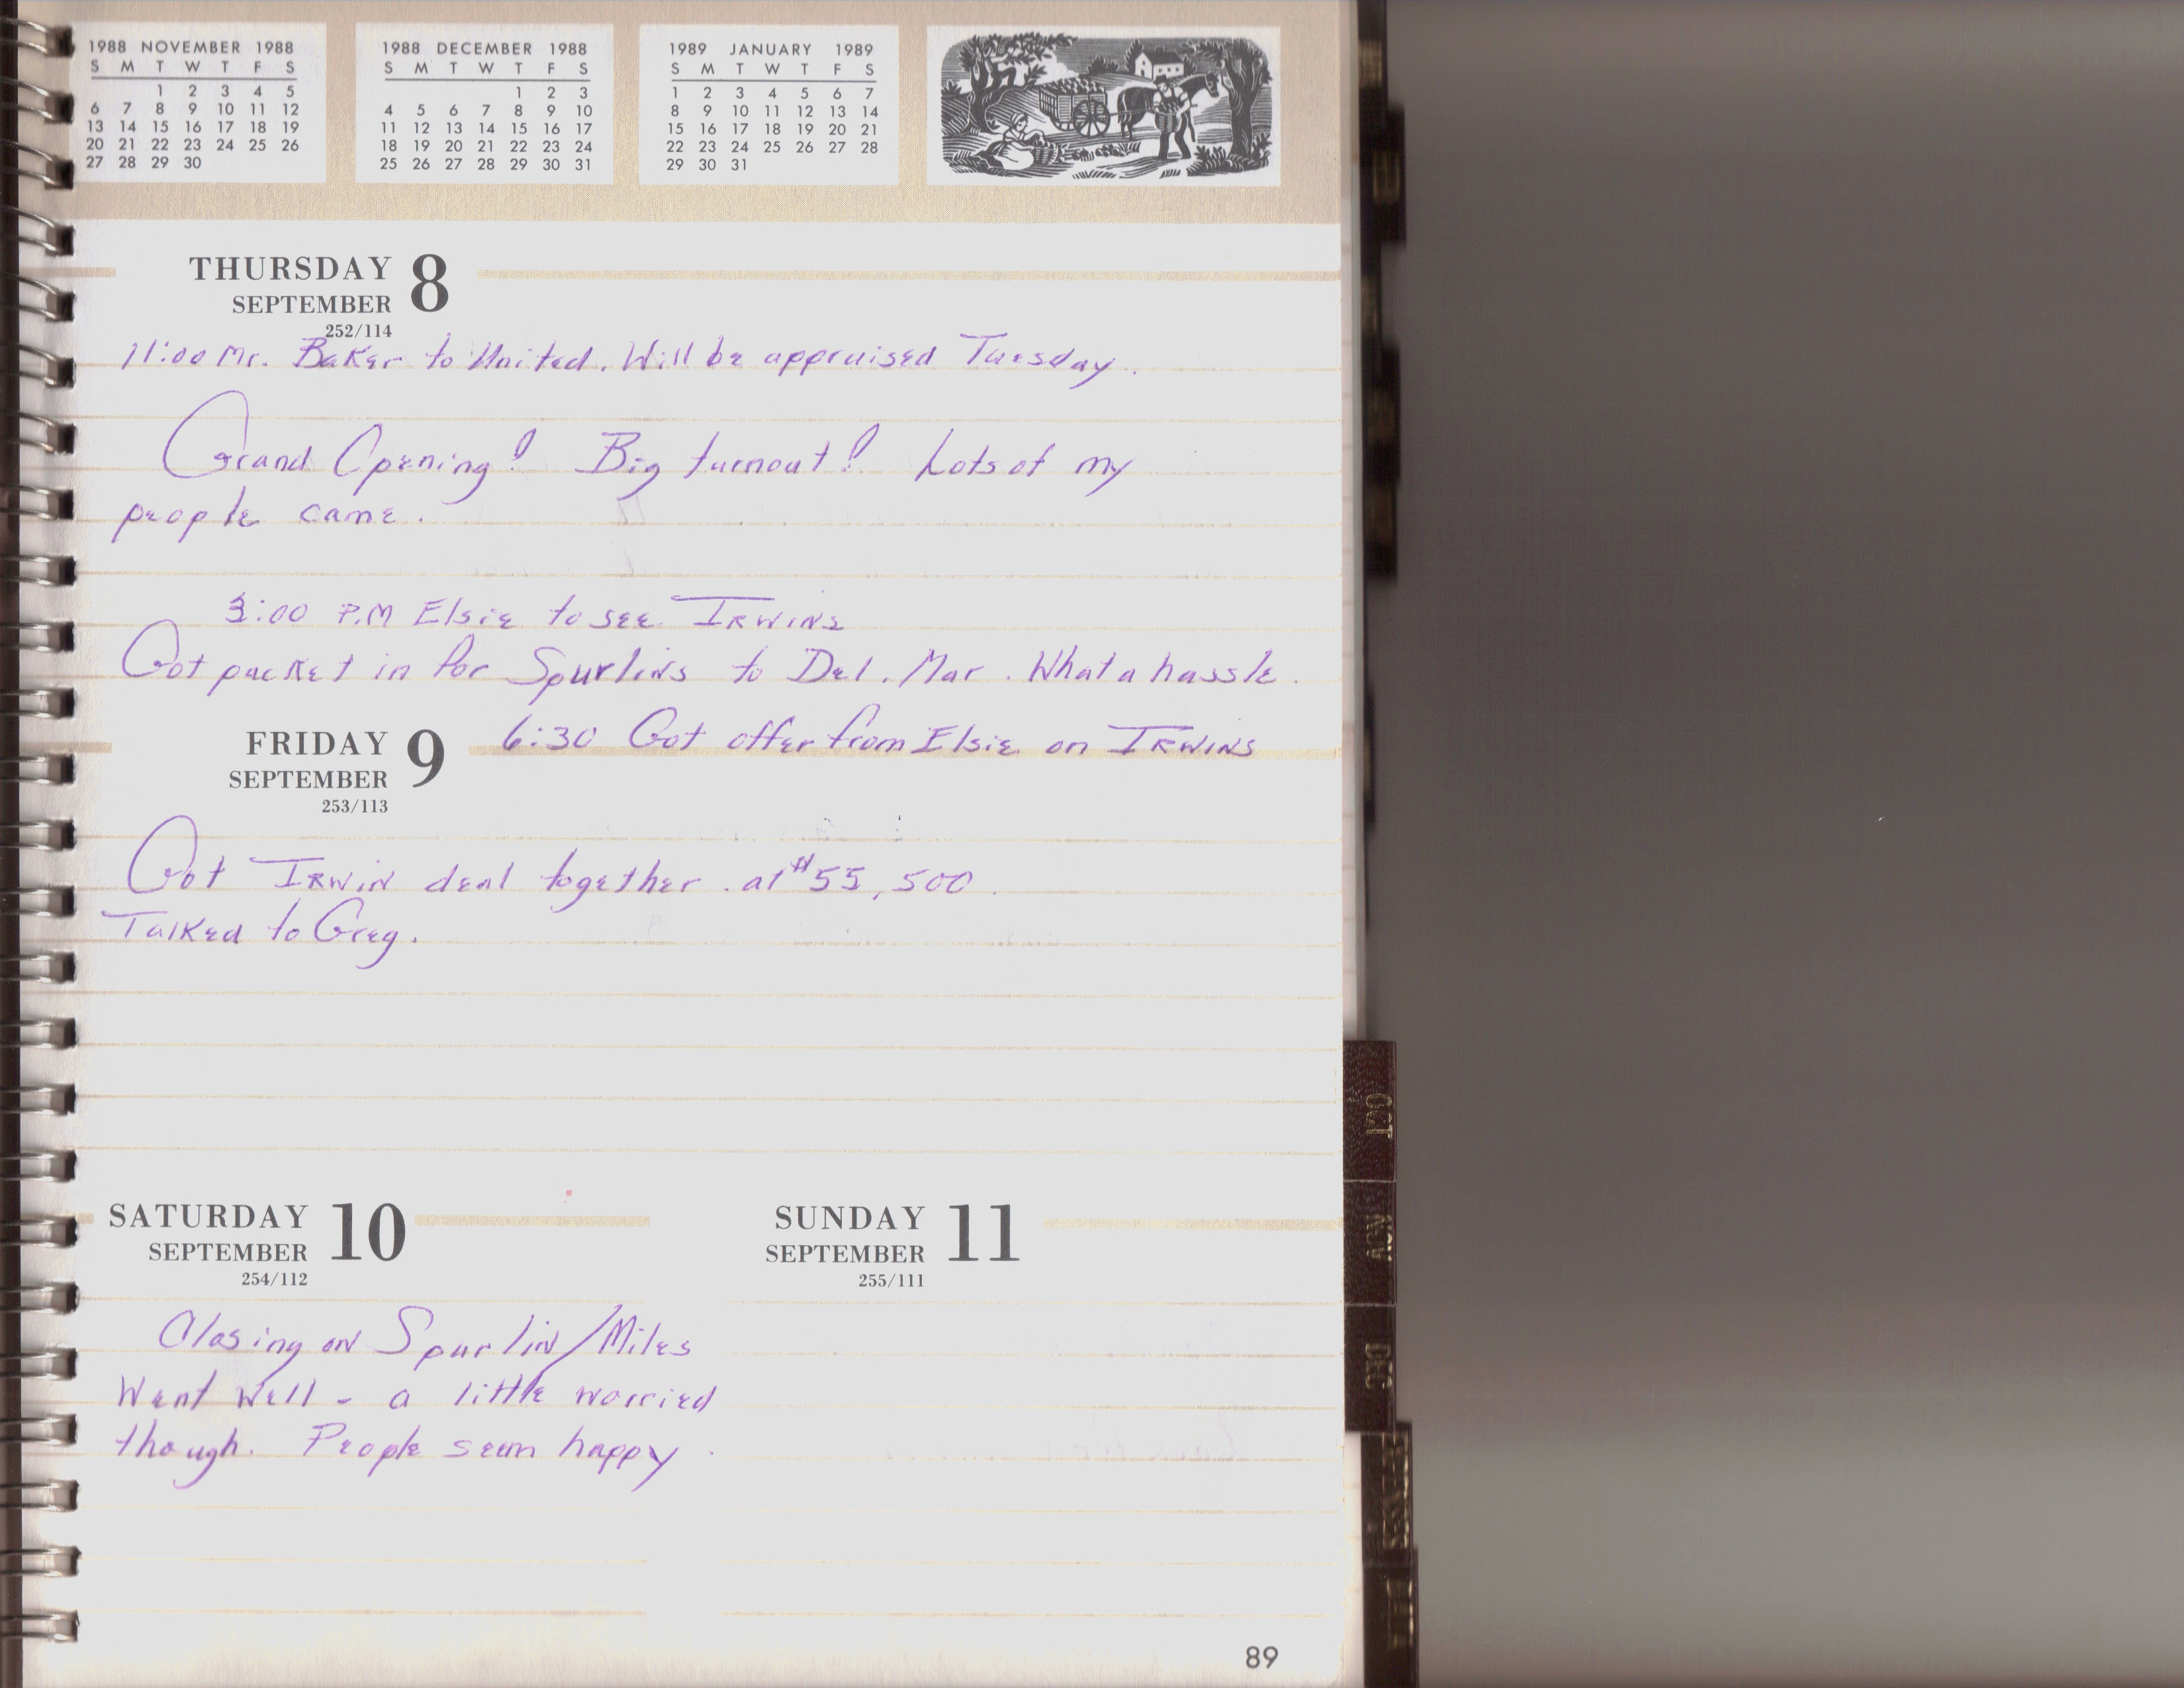 1988 NOVEMBER 1988
S M T W T F S
1 2 3 4 5
6 7 8 9 10 11 12
13 14 15 16 17 18 19
20 21 22 23 24 25 26
27 28 29 30
1988 DECEMBER 1988
S M T W T F S
1 2 3
4 5 6 7 8 9 10
11 12 13 14 15 16 17
18 19 20 21 22 23 24
25 26 27 28 29 30 31
1989 JANUARY 1989
S M T W T F S
1 2 3 4 5 6 7
8 9 10 11 12 13 14
15 16 17 18 19 20 21
22 23 24 25 26 27 28
29 30 31
THURSDAY 8
SEPTEMBER
252/114
11:00 Mr. Baker to United. Will be appraised Tuesday.
Grand Opening! Big turnout! Lots of my
people came.
3:00 P.M Elsie to see IRWINS
Got packet in for Spurlins to Del. Mar. What a hassle.
6:30 Got offer from Elsie on IRWINS
FRIDAY 9
SEPTEMBER
253/113
Got IRWIN deal together. at $55,500.
Talked to Greg.
SATURDAY 10
SEPTEMBER
254/112
Closing on Spurlin/Miles
Went well - a little worried
though. People seem happy.
SUNDAY 11
SEPTEMBER
255/111
89
OCT
NOV
DEC